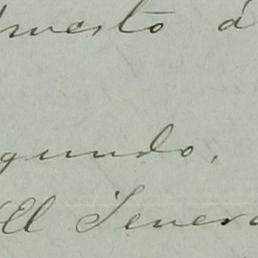 puesto á
gundo,
El Genera